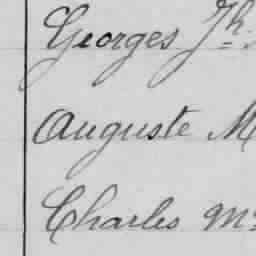 Georges Jh
Auguste M
Charles Mi